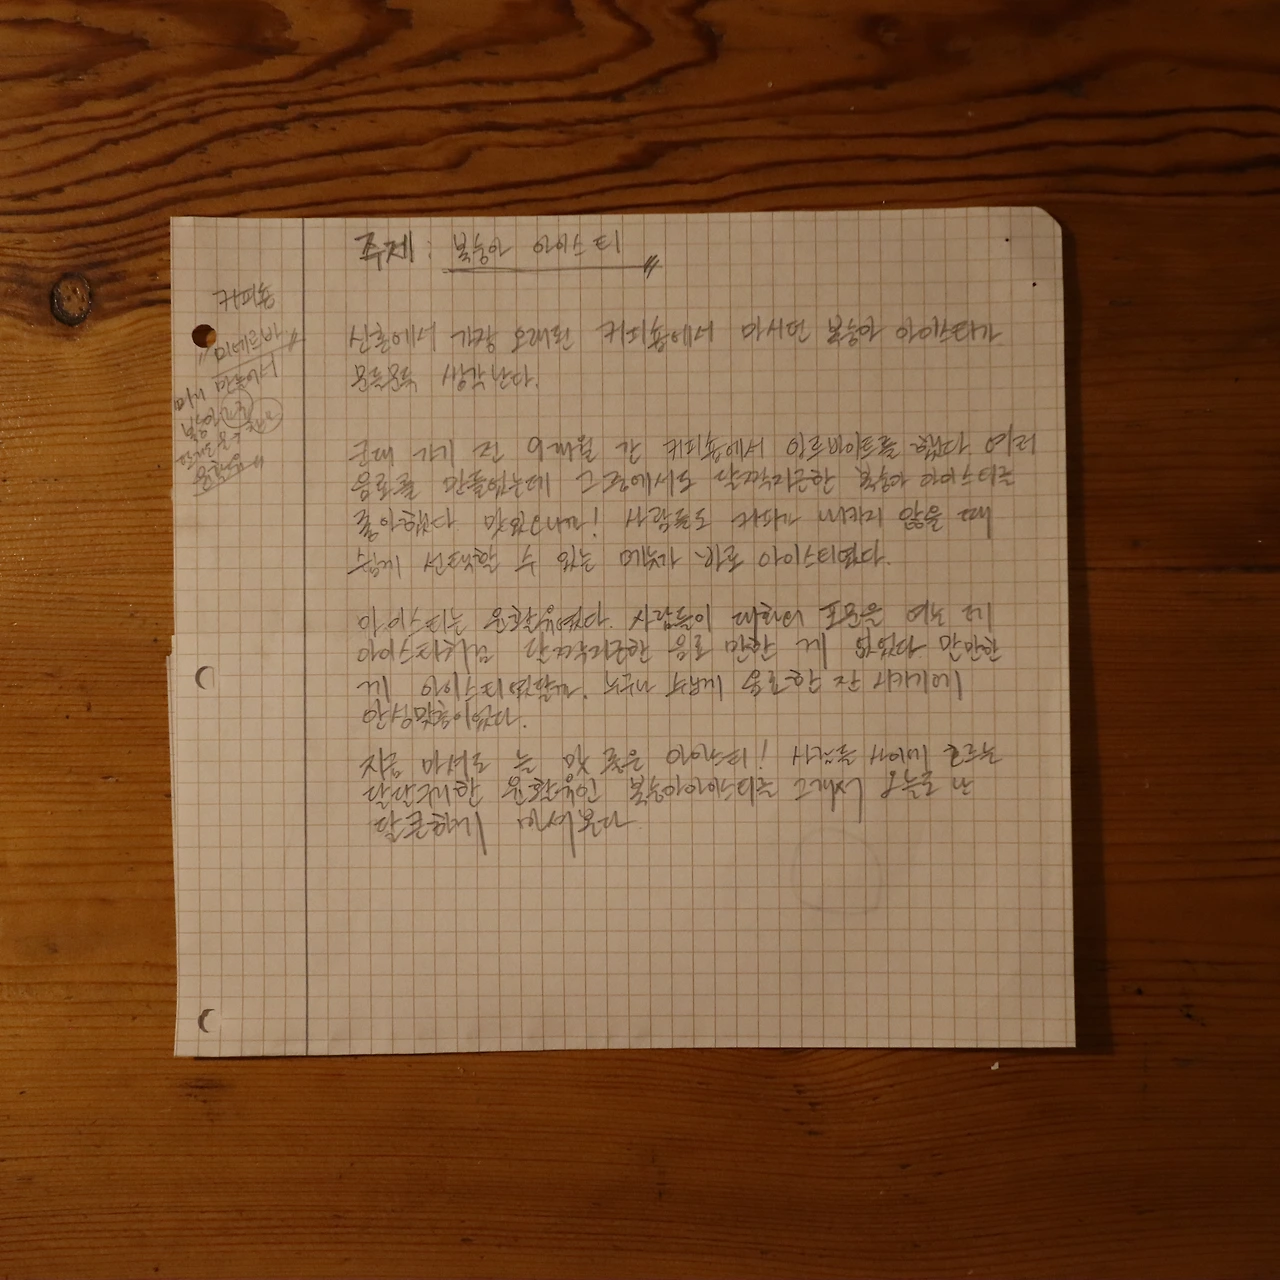 주제 : 복숭아 아이스티
커피숍
"미네르바"
미리 만들어서
복숭아
신촌에서 가장 오래된 커피숍에서 마시던 복숭아 아이스티가
문득문득 생각난다.
군대 가기 전 9개월 간 커피숍에서 아르바이트를 했다. 여러
음료를 만들었는데 그중에서도 달짝지근한 복숭아 아이스티를
좋아했다. 맛있으니까! 사람들도 커피가 내키지 않을 때
쉽게 선택할 수 있는 메뉴가 바로 아이스티였다.
아이스티는 윤활유였다. 사람들이 대화의 포문을 여는 데
아이스티처럼 달짝지근한 음료 만한 게 없었다. 만만한
게 아이스티였달까. 누구나 쉽게 음료 한 잔 시키기에
안성맞춤이었다.
지금 마셔도 늘 맛 좋은 아이스티! 사람들 사이에 흐르는
달달구리한 윤활유인 복숭아아이스티를 그래서 오늘도 난
달콤하게 마셔본다.